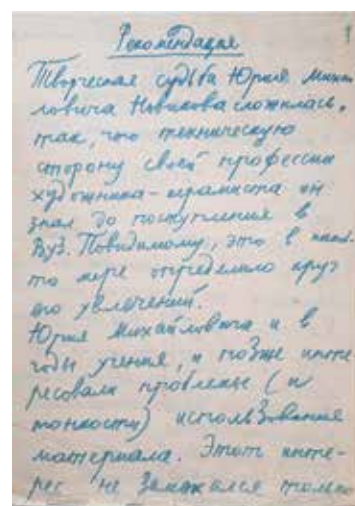 Рекомендация
Творческая судьба Юрия Михай
ловича Новикова сложилась,
так, что техническую
сторону своей профессии
художника-керамиста он
знал до поступления в
Вуз. Повидимому, это в какой-
то мере определило круг
его увлечений.
Юрия Михайловича и в
годы учения, и позже инте
ресовали проблемы (и
тонкости) использования
материала. Этот инте-
рес не замыкался только